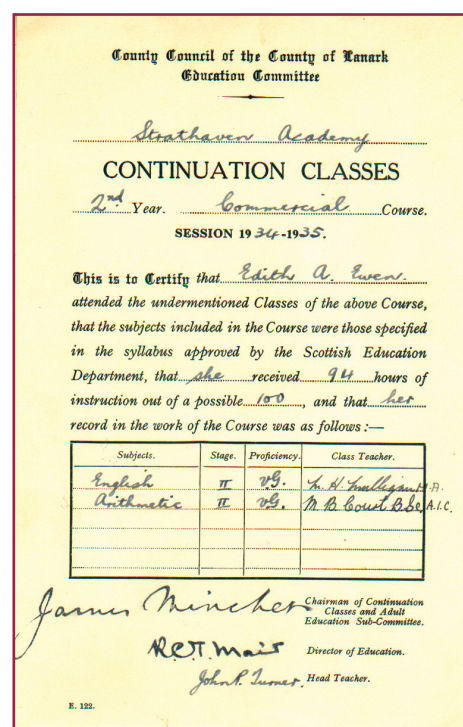 County Council of the County of Lanark
Education Committee
Strathaven Academy
CONTINUATION CLASSES
2nd Year. Commercial Course.
SESSION 1934-1935.
This is to Certify that Edith A. Ewen.
attended the undermentioned Classes of the above Course,
that the subjects included in the Course were those specified
in the syllabus approved by the Scottish Education
Department, that she received 94 hours of
instruction out of a possible 100, and that her
record in the work of the Course was as follows :—
Subjects. Stage. Proficiency. Class Teacher.
English II v.G. M. H. Mulligan M.A.
Arithmetic II v.G. M. B. Court B.Sc. A.I.C.
James Mincher Chairman of Continuation
Classes and Adult
Education Sub-Committee.
R.C.T. Mair Director of Education.
John R. Turner. Head Teacher.
E. 122.